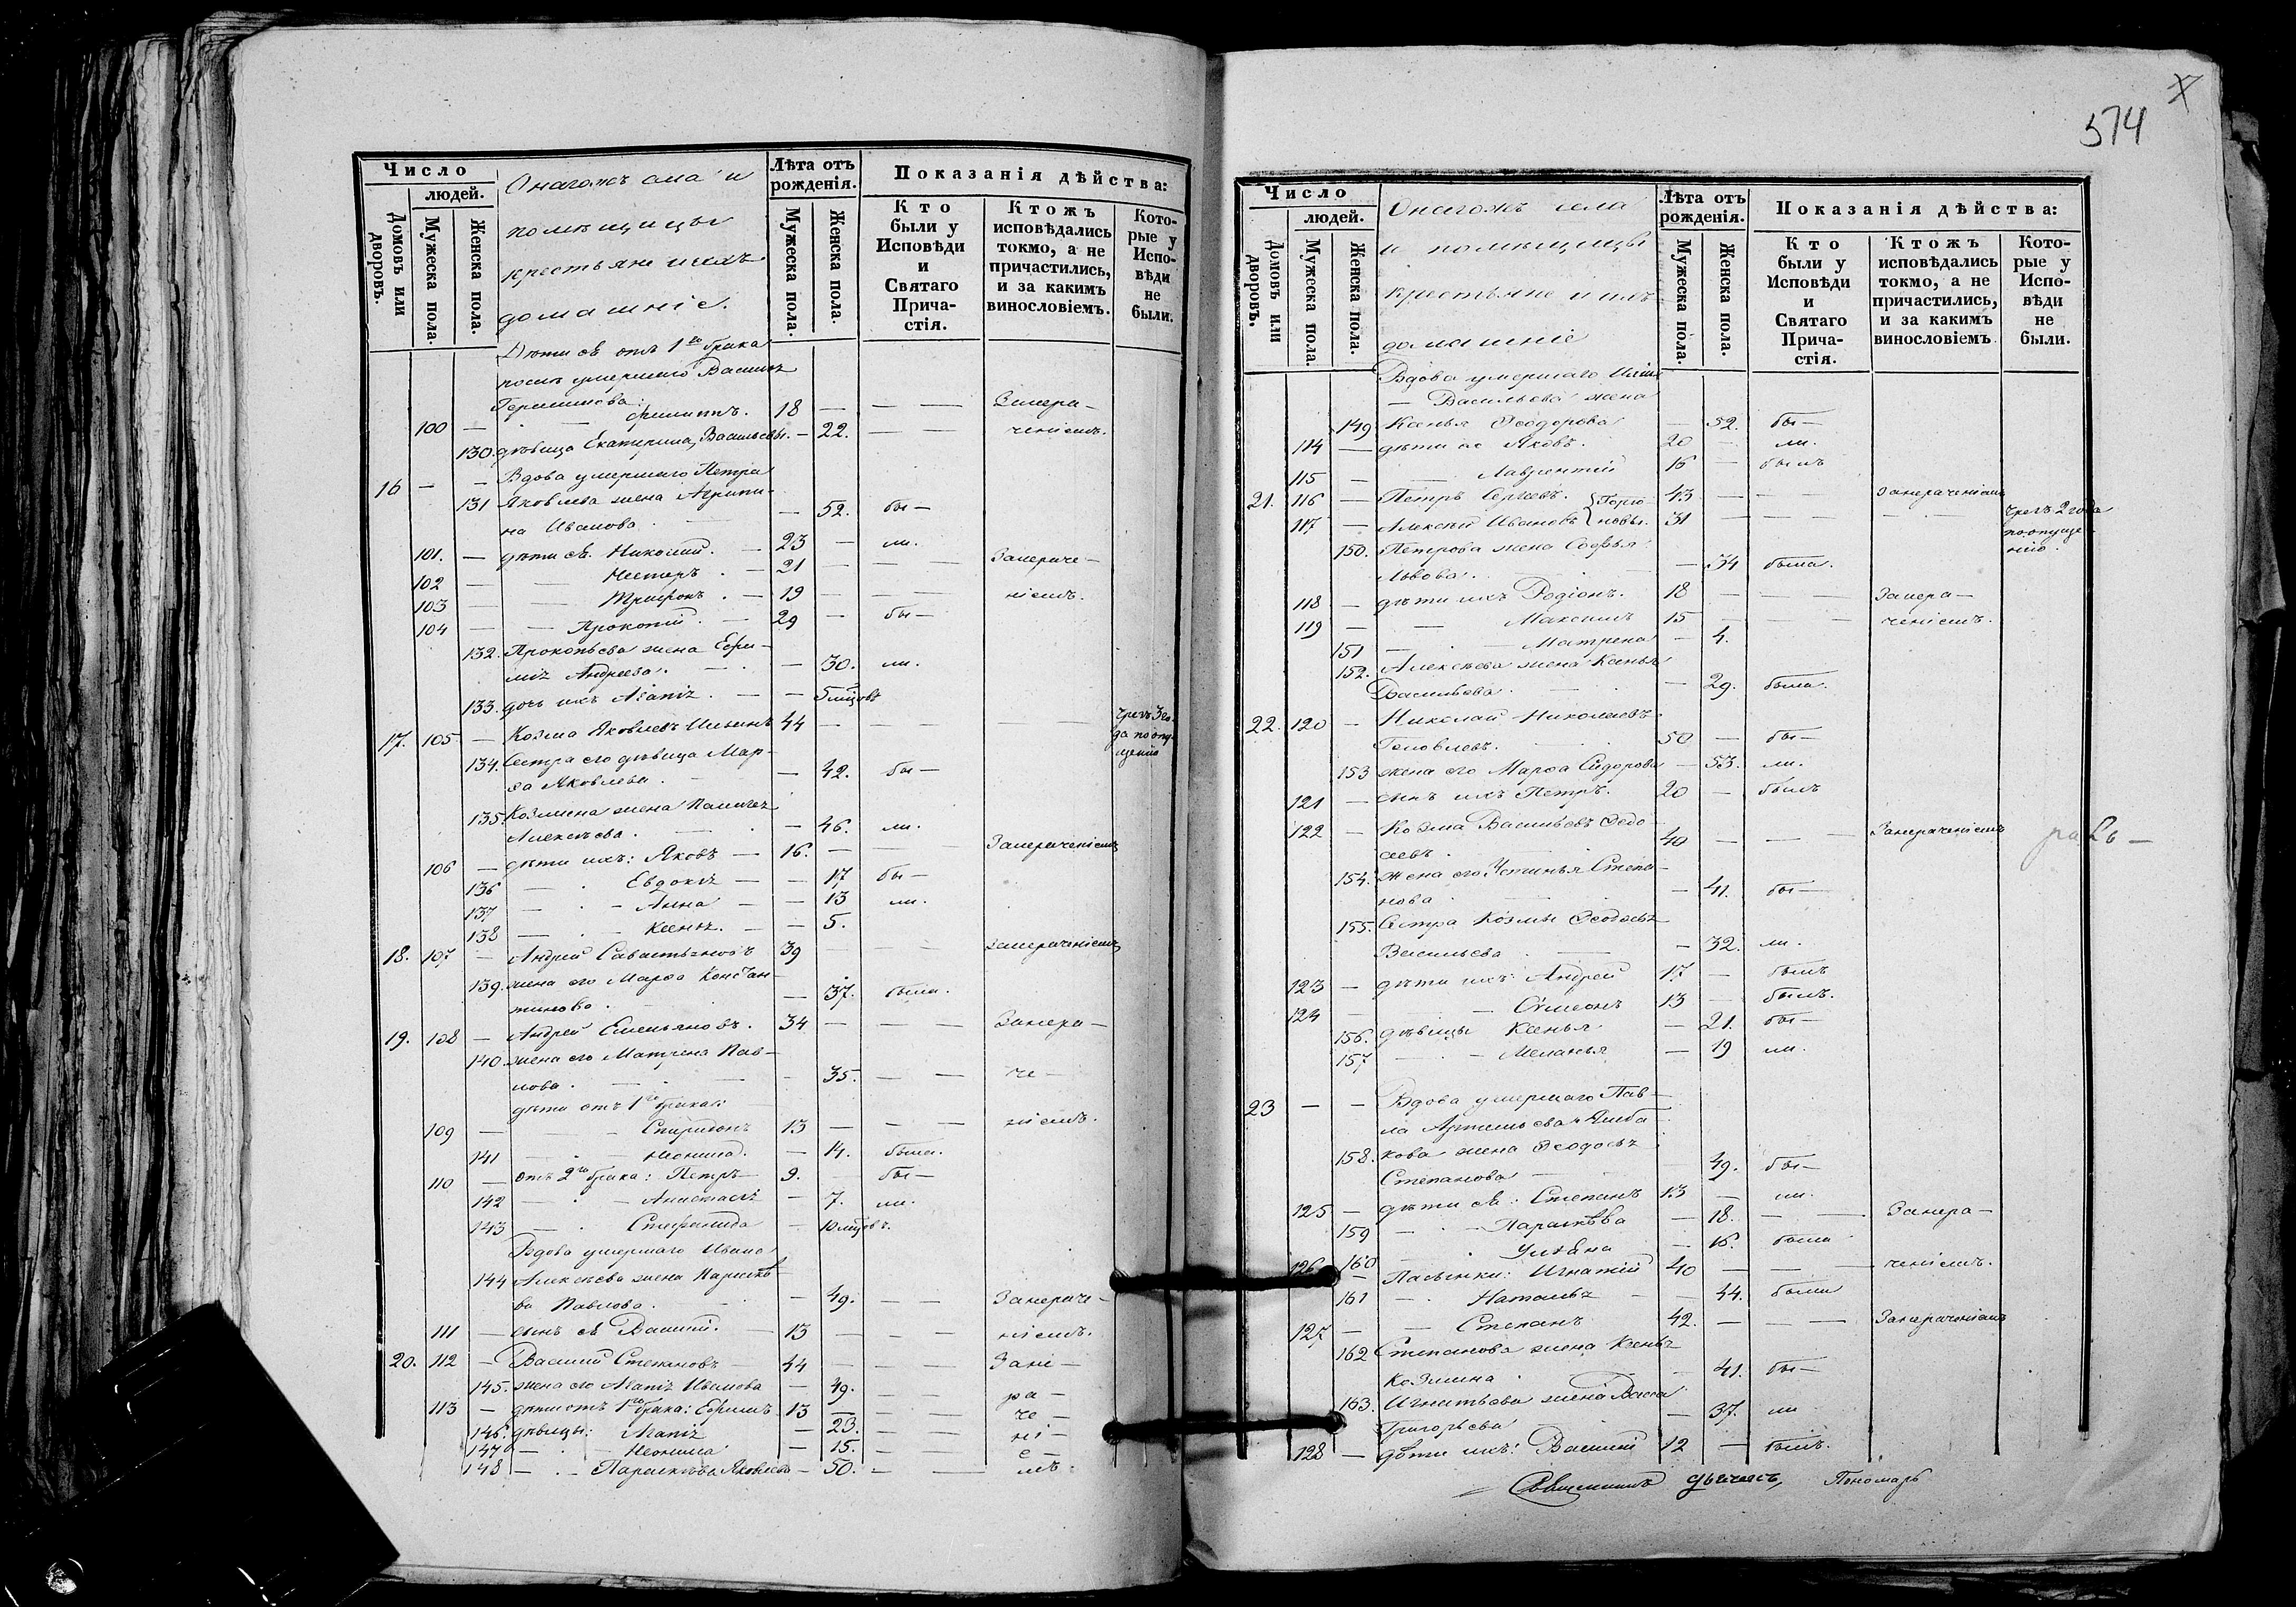 Число
людей.
Домовъ или дворовъ.
Мужеска пола.
Женска пола.
Онагожъ села и
помѣщицы
крестьяне и ихъ
домашніе.
Лѣта отъ рожденія.
Мужеска пола.
Женска пола.
Показанія дѣйства:
Кто были у Исповѣди и Святаго Прича-стія.
Ктожъ исповѣдались токмо, а не причастились, и за какимъ винословіемъ.
Кото-рые у Испо-вѣди не были.
Дѣти ея отъ 1го брака
послѣ умершаго Василія
100 — Филиппъ. 18 — — — Занера-
130. дѣвица Екатерина Васильевы. — 22. — — ченіемъ.
16 — — Вдова умершаго Петра
131 Яковлева жена Агрипи-
на Иванова — 52. бы —
101. — дѣти ея. Николай. — 23 — ли.
102 — — Нестеръ. — 21 — — — Занераче-
103 — — Трифонъ. — 19 — — ніемъ.
104 — — Прокопій. — 29 — бы —
132. Прокопьева жена Ефи-
мія Андреева. — 30. ли.
133. дочь ихъ Агапія. — — 5 мѣцовъ
17. 105 — Козма Яковлевъ 44 — — — — чрезъ 3 го-
да по опу-
щенію
134. Сестра его дѣвица Мар-
ѳа Яковлева. — 42. бы —
135. Козмина жена Пелагія
Алексѣева. — 46. ли.
106 — дѣти ихъ: Яковъ — 16. — — — Занераченіемъ
136 — Евдокія — — 17 бы —
137 — — Анна — — 13 ли.
138 — — Ксенія. — — 5.
18. 107 — Андрей Савастьяновъ 39 — — Занераченіемъ
139. жена его Марѳа Констан-
тинова. — 37. была.
19. 108 — Андрей Емельяновъ. 34 — — — Занера —
140. жена его Матрена Пав-
лова. — — 35. — — че —
дѣти отъ 1го брака:
109 — — Спиридонъ 13 — — — ніемъ.
141 — Неонила. — 14. была.
110 — отъ 2го брака: Петръ 9. — бы —
142 — — Анастасія — 7. ли.
143 — Стефанида — 10 мѣцовъ.
Вдова умершаго Ивана
144 Алексѣева жена Параске-
ва Павлова. — 49. — — Занераче-
111 — сынъ ея Василій. — 13 — — — ніемъ.
20. 112 — Василій Степановъ — 44 — — — Зане —
145. жена его Агапія Иванова — 49. — — ра —
113 — дѣти отъ 1го брака: Ефимъ 13 — — — че —
146. дѣвицы: Агапія — 23. — — ні —
147 — — Неонила — 15. — — е —
148 — — Параскева Яковлева — 50. — — мъ.
574
Число
людей.
Домовъ или дворовъ.
Мужеска пола.
Женска пола.
Онагожъ села
и помѣщицы
крестьяне и ихъ
домашніе
Лѣта отъ рожденія.
Мужеска пола.
Женска пола.
Показанія дѣйства:
Кто были у Исповѣди и Святаго Прича-стія.
Ктожъ исповѣдались токмо, а не причастились, и за какимъ винословіемъ
Кото-рые у Испо-вѣди не были.
Вдова умершаго Иліи
— Васильева жена
149 Ксенья Ѳеодорова — 52. бы —
114 — дѣти ее Яковъ. 20 — ли.
115 — — Лаврентій 16 — былъ
21. 116 — Петръ Сергѣевъ. 43 — — — Занераченіемъ
117 — Алексѣй Ивановъ 31 — — — — чрезъ 2 года
по опуще-
нію.
150. Петрова жена Софья
Львова. — 34 была.
118 — дѣти ихъ Родіонъ. 18 — — — Занера —
119 — — Максимъ 15 — — — ченіемъ.
151 — — Матрена — 4.
152. Алексѣева жена Ксенья
Васильева. — 29. была.
22. 120 — Николай Николаевъ
Головлевъ. 50 — бы —
153 жена его Марѳа Сидорова — 53. ли.
121 — сынъ ихъ Петръ. 20 — былъ
122 — Козма Васильевъ Ѳедо-
сеевъ. 40 — — Занераченіемъ
154. Жена его Устинья Степа-
нова — 41. бы —
155. Сестра Козмы Ѳеодосья
Васильева — 32. ли.
123 — дѣти ихъ: Андрей 17 — былъ
124 — — Симеонъ 13 — былъ.
156. дѣвицы Ксенья — 21. бы —
157 — — Меланья — 19 ли.
23 — — Вдова умершаго Пав-
ла Артемьева
158. кова жена Ѳеодосья
Степанова — 49. бы —
125 — дѣти ея: Степанъ 13 — ли.
159 — — Параскева — 18. — — Занера —
160 — Ульяна — 16. была
126 — Пасынки: Игнатій 40 — — — ченіемъ.
161 — Наталья — — 44. была
127 — — Степанъ 42. — — — Занераченіемъ
162 Степанова жена Ксенья
Козмина — 41. бы —
163. Игнатьева жена Васса
Григорьева — 37. ли
128 — дѣти ихъ: Василій 12 — былъ.
Священникъ Дьячекъ, Пономарь